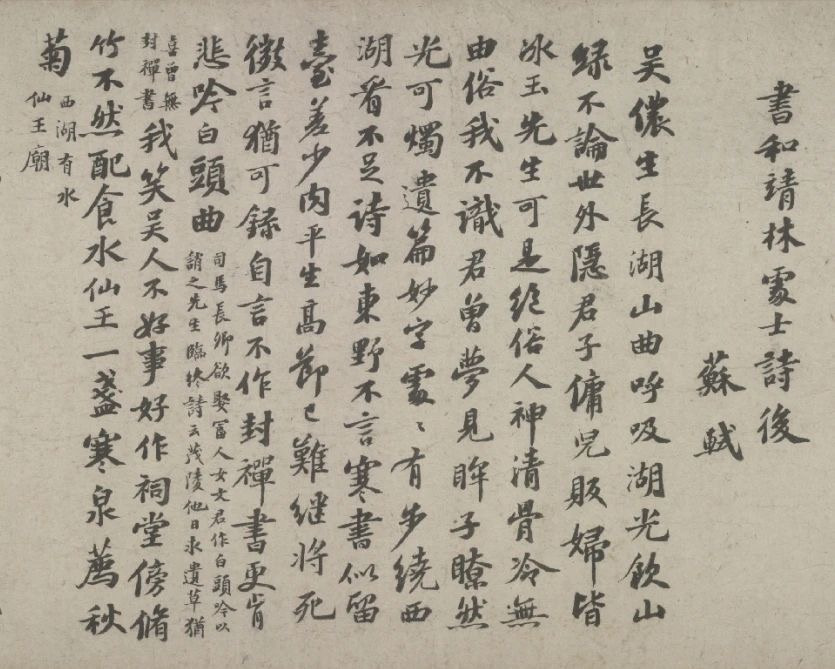 書和靖林處士詩後
蘇軾
吴儂生長湖山曲呼吸湖光飲山
緑不論世外隠君子傭兒販婦皆
冰玉先生可是絶俗人神清骨冷無
由俗我不識君曾夢見眸子瞭然
光可燭遺篇妙字處〻有步繞西
湖看不足詩如東野不言寒書似留
臺差少肉平生高節已難继將死
微言猶可録自言不作封禪書更肯
悲吟白頭曲
司馬長卿欲娶富人女文君作白頭吟以
誚之先生臨終詩云茂陵他日求遺草猶
喜曾無
封禪書
我笑吴人不好事好作祠堂傍脩
竹不然配食水仙王一盞寒泉薦秋
菊
西湖有水
仙王廟